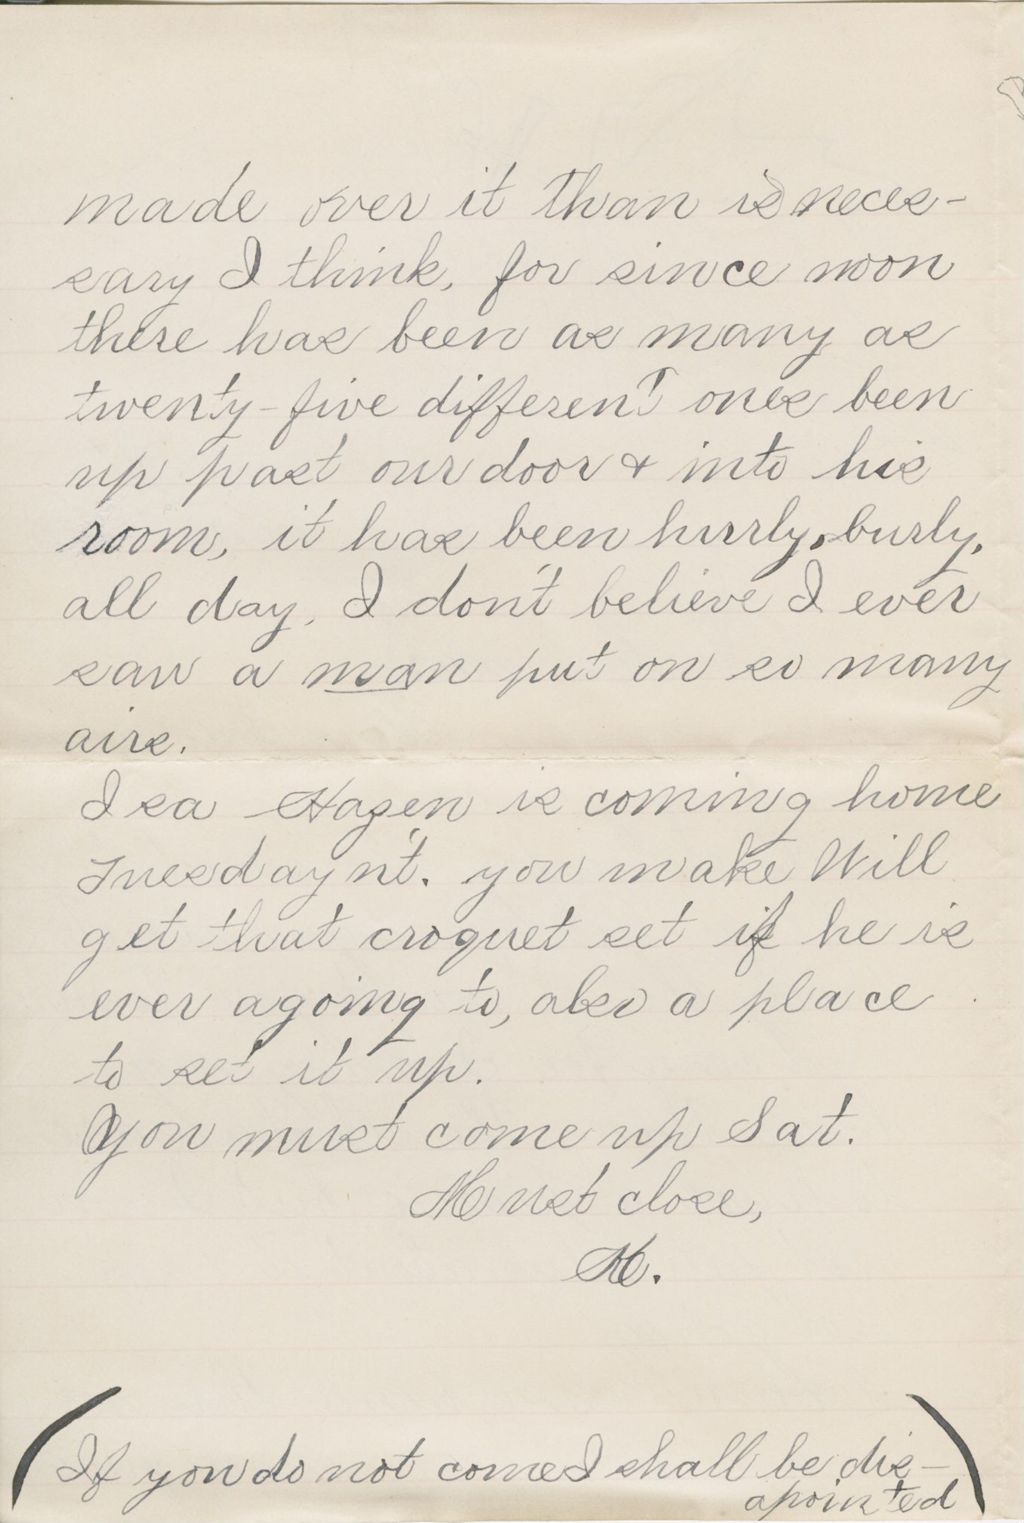 made over it than is neces-
sary I think, for since noon
there has been as many as
twenty-five different ones been
up past our door & into his
room, it has been hurrly, burly,
all day, I don't believe I ever
saw a man put on so many
airs.
Isa Hagen is coming home
Tuesday n't. you make Will
get that croquet set if he is
ever agoing to, also a place
to set it up.
You must come up Sat.
Must close,
M.
(If you do not come I shall be dis-
apointed)